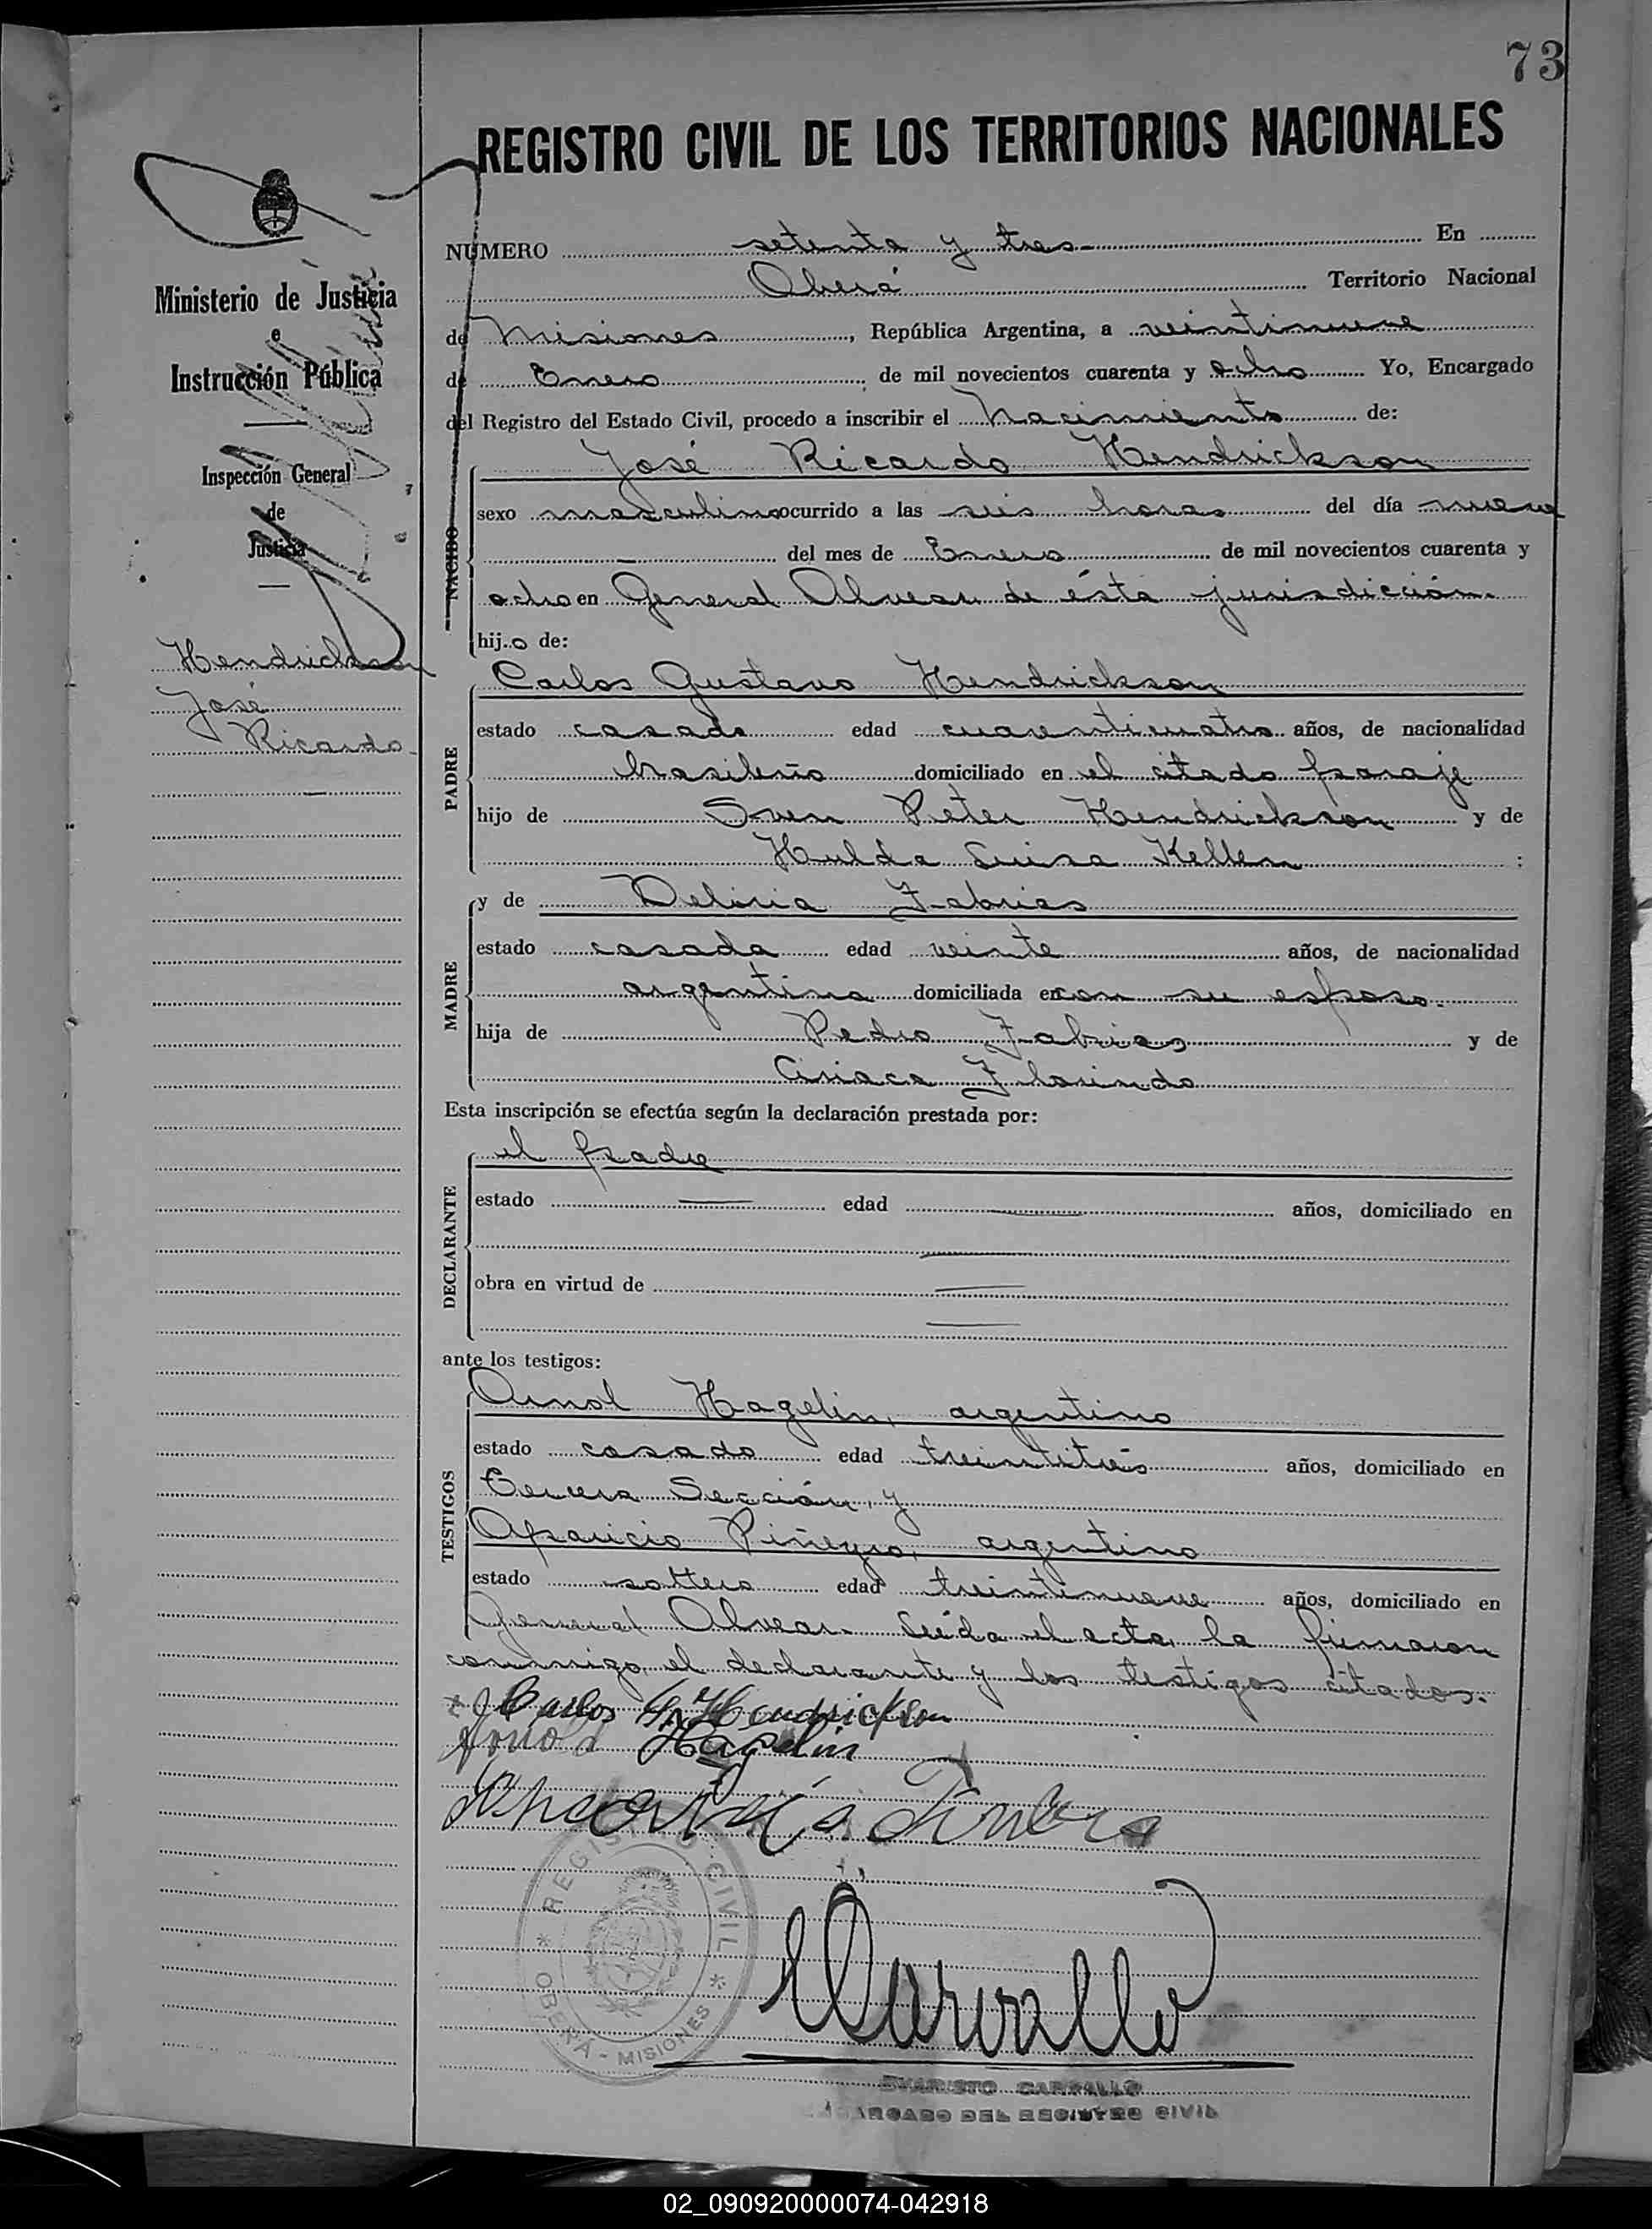 73
REGISTRO CIVIL DE LOS TERRITORIOS NACIONALES
Ministerio de Justicia
e
Instrucción Pública
Inspección General
de
Justicia
Hendrickson
José
Ricardo
NÚMERO setenta y tres En
Oberá Territorio Nacional
de Misiones, República Argentina, a veintinueve
de Enero de mil novecientos cuarenta y ocho Yo, Encargado
del Registro del Estado Civil, procedo a inscribir el nacimiento de:
NACIDO
José Ricardo Hendrickson
sexo masculino ocurrido a las seis horas del día nueve
del mes de Enero de mil novecientos cuarenta y
ocho en General Alvear de ésta jurisdicción.
hijo de:
PADRE
Carlos Gustavo Hendrickson
estado casado edad cuarenticuatro años, de nacionalidad
brasileño domiciliado en el citado paraje
hijo de Sven Peter Hendrickson y de
Hulda Luisa Kellen :
MADRE
y de Deliria Fabrias
estado casada edad veinte años, de nacionalidad
argentina domiciliada en con su esposo.
hija de Pedro Fabrias y de
Ciriaca Florindo
Esta inscripción se efectúa según la declaración prestada por:
DECLARANTE
el padre
estado edad años, domiciliado en
obra en virtud de
ante los testigos:
TESTIGOS
Arnol Hagelin, argentino
estado casado edad treintitrés años, domiciliado en
Tercera Sección, y
Aparicio Piñeyro, argentino
estado soltero edad treintinueve años, domiciliado en
General Alvear. Leída el acta, la firmaron
conmigo, el declarante y los testigos citados.
Carlos G. Hendrickson
Arnold Hagelin
Carvallo
REGISTRO CIVIL
* OBERÁ - MISIONES *
EVARISTO CARVALLO
ENCARGADO DEL REGISTRO CIVIL
02_090920000074-042918